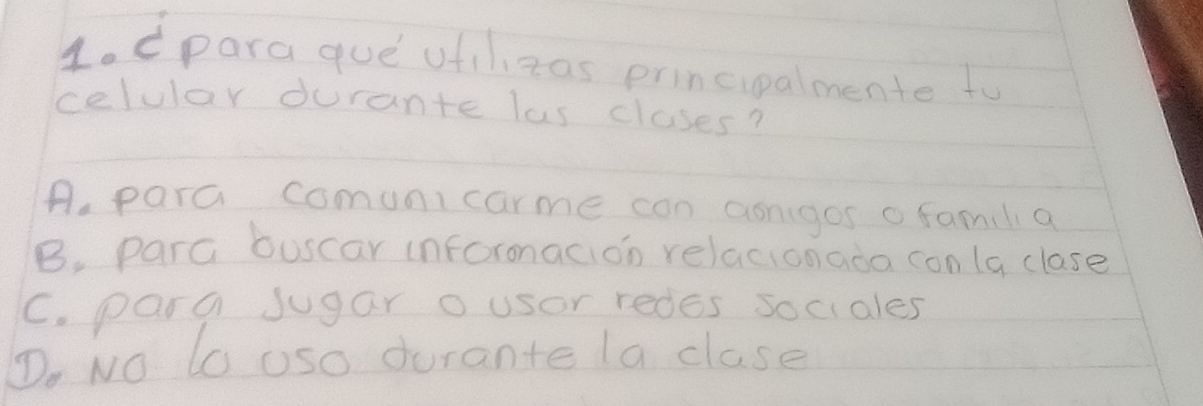 1. ¿para qué utilizas principalmente tu
celular durante las clases?
A. para comunicarme con amigos o familia
B. para buscar información relacionada con la clase
C. para Jugar o usar redes sociales
D. NO lo uso durante la clase